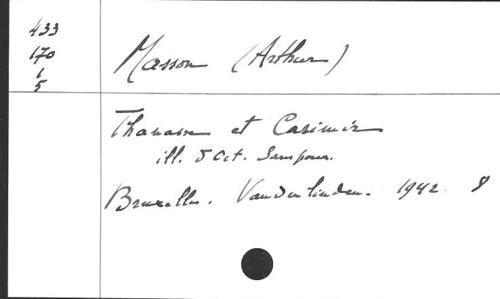 433
170
1
5
Masson (Arthur)
Thanasse et Casimir
ill. d'Oct. Sanspoux.
Bruxelles. Vanderlinden. 1942. 8